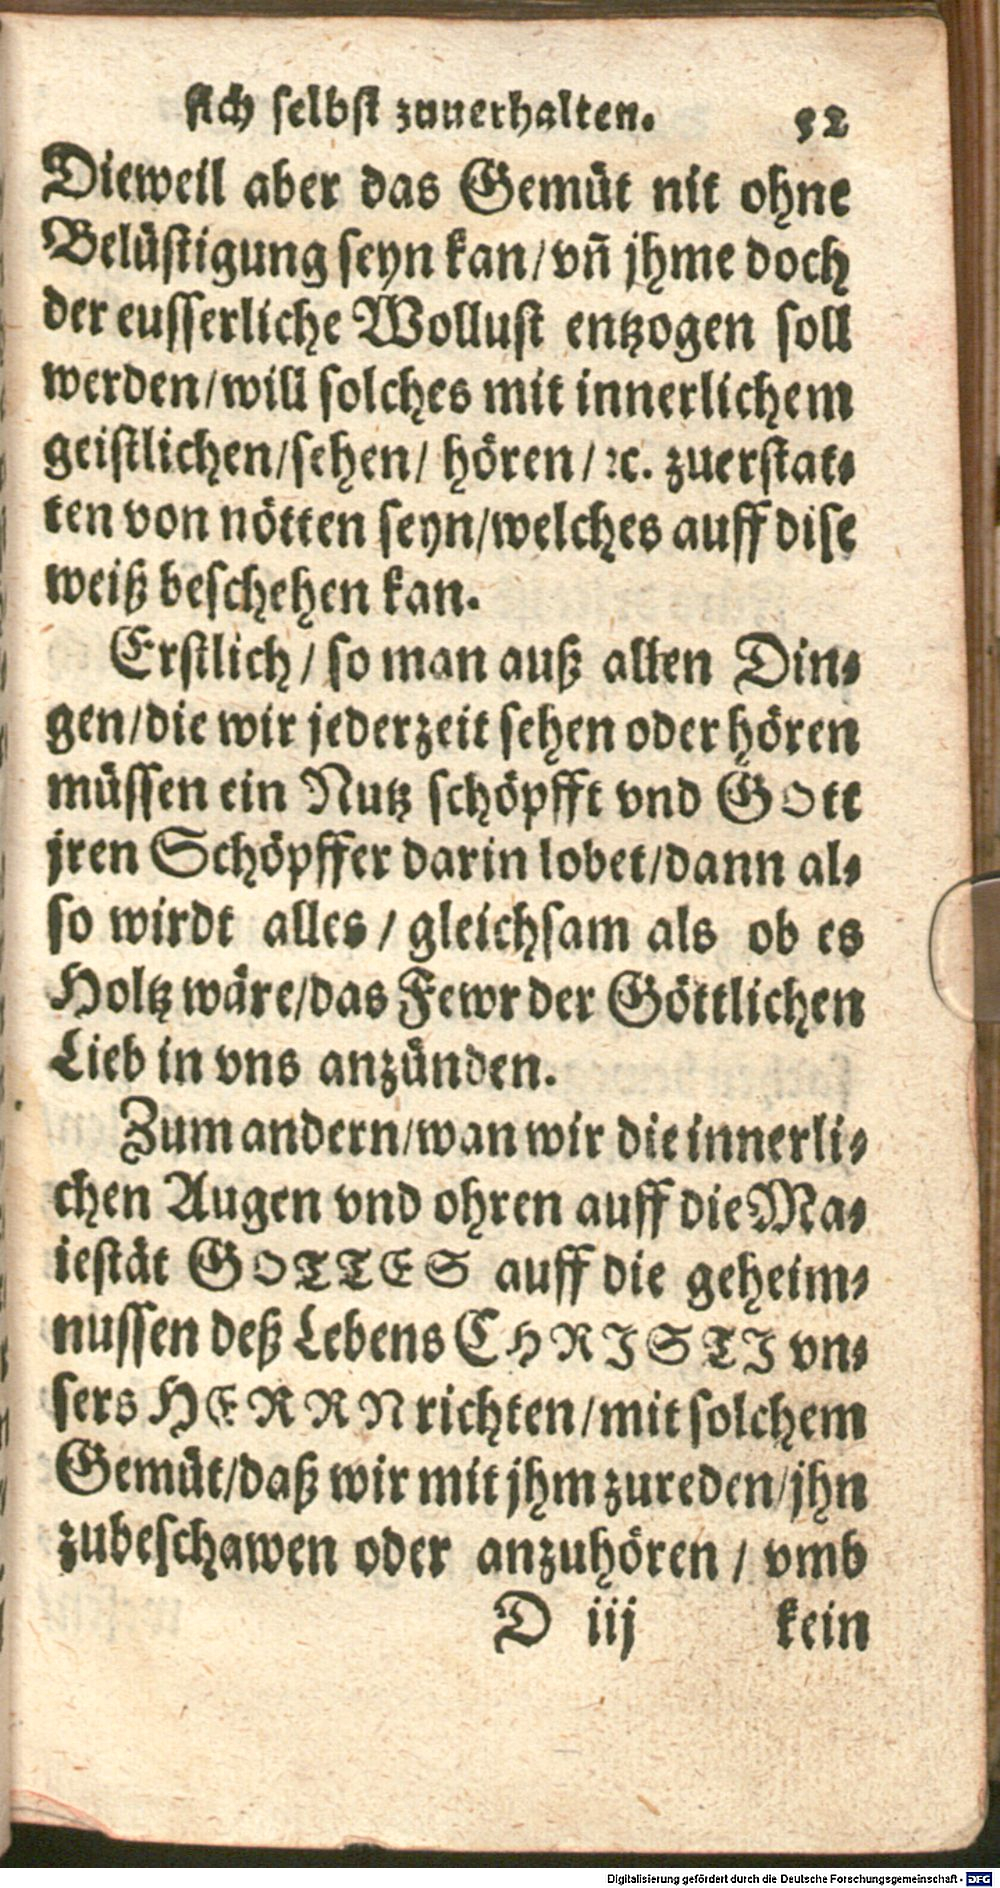 sich selbst zuuerhalten. 52
Dieweil aber das Gemüt nit ohne
Belüstigung seyn kan/ vñ jhme doch
der eusserliche Wollust entzogen soll
werden/ will solches mit innerlichem
geistlichen/ sehen/ hören/ ꝛc. zuerstat⸗
ten von nötten seyn/ welches auff dise
weiß beschehen kan.
Erstlich/ so man auß allen Din⸗
gen/ die wir jederzeit sehen oder hören
müssen ein Nutz schöpfft vnd GOtt
jren Schöpffer darin lobet/ dann al⸗
so wirdt alles/ gleichsam als ob es
Holtz wäre/ das Fewr der Göttlichen
Lieb in vns anzünden.
Zum andern/ wan wir die innerli⸗
chen Augen vnd ohren auff die Ma⸗
iestät GOTTES auff die geheim⸗
nussen deß Lebens CHRISTI vn⸗
sers HERRN richten/ mit solchem
Gemüt/ daß wir mit jhm zureden/ jhn
zubeschawen oder anzuhören/ vmb
D iij kein
Digitalisierung gefördert durch die Deutsche Forschungsgemeinschaft - DFG